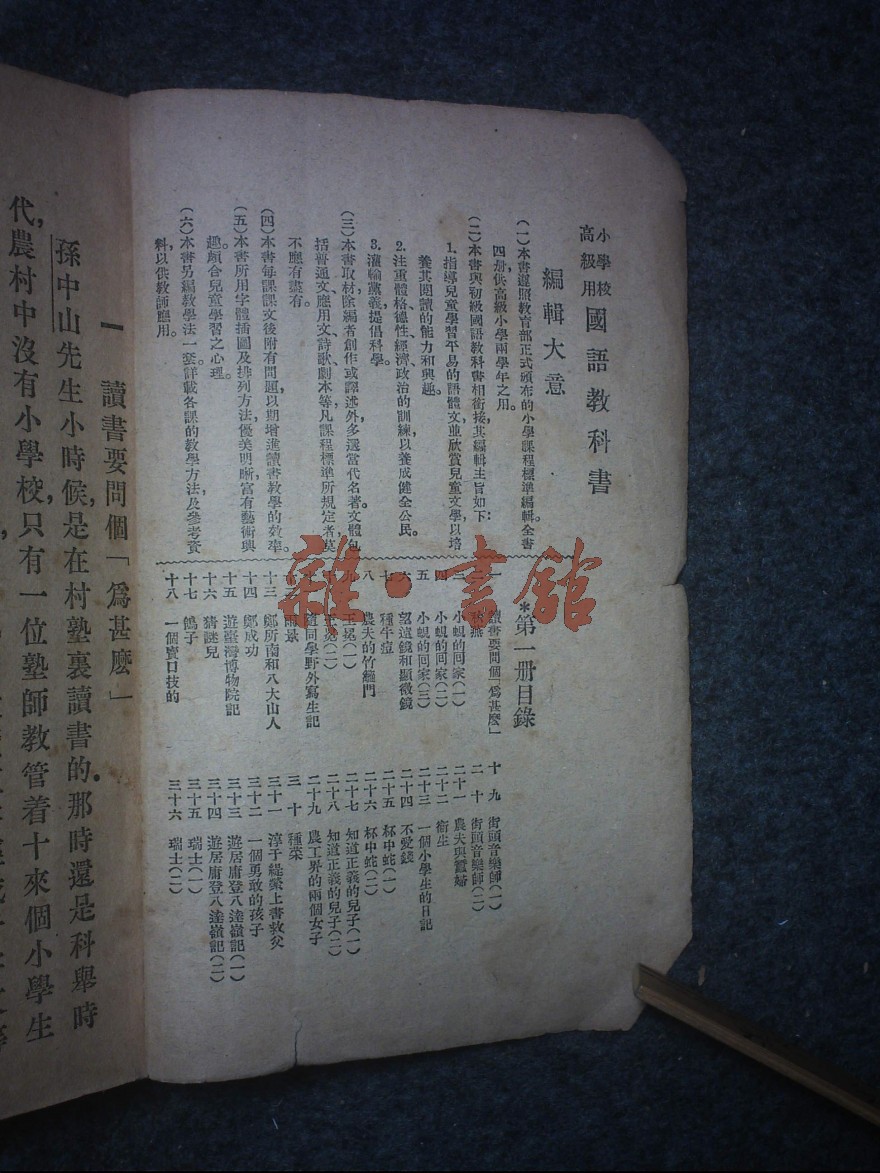 小學校
高級用
國語教科書
編輯大意
(一)本書遵照教育部正式頒布的小學課程標準編輯。全書
四册,供高級小學兩學年之用。
(二)本書與初級國語教科書相銜接,其編輯主旨如下:
1. 指導兒童學習平易的語體文,並欣賞兒童文學,以培
養其閱讀的能力和興趣。
2. 注重體格、德性、經濟、政治的訓練,以養成健全公民。
3. 灌輸黨義,提倡科學。
(三)本書取材,除編者創作或譯述外,多選當代名著。文體包
括普通文、應用文、詩歌、劇本等,凡課程標準所規定者,莫
不應有盡有。
(四)本書每課課文後附有問題,以期增進讀書教學的效率。
(五)本書所用字體插圖及排列方法,優美明晰,富有藝術興
趣,頗合兒童學習之心理。
(六)本書另編教學法一套,詳載各課的教學方法及參考資
料,以供教師應用。
*第一册目錄
一 讀書要問個「爲甚麽」
燕
三 小蜆的回家(一)
四 小蜆的回家(二)
五 小蜆的回家(三)
六 望遠鏡和顯微鏡
七 種牛痘
八 農夫的竹籬門
九 王冕(一)
王冕(二)
隨同學野外寫生記
雨景
十三 鄭所南和八大山人
十四 鄭成功
十五 遊臺灣博物院記
十六 猜謎兒
十七 鴿子
十八 一個賣口技的
十九 街頭音樂師(一)
二十 街頭音樂師(二)
二十一 農夫與蠶婦
二十二 衛生
二十三 一個小學生的日記
二十四 不愛錢
二十五 杯中蛇(一)
二十六 杯中蛇(二)
二十七 知道正義的兒子(一)
二十八 知道正義的兒子(二)
二十九 農工界的兩個女子
三十 種菜
三十一 淳于緹縈上書救父
三十二 一個勇敢的孩子
三十三 遊居庸登八達嶺記(一)
三十四 遊居庸登八達嶺記(二)
三十五 瑞士(一)
三十六 瑞士(二)
雜·書館
一 讀書要問個「爲甚麽」
孫中山先生小時候,是在村塾裏讀書的。那時還是科舉時
代,農村中沒有小學校,只有一位塾師教管着十來個小學生